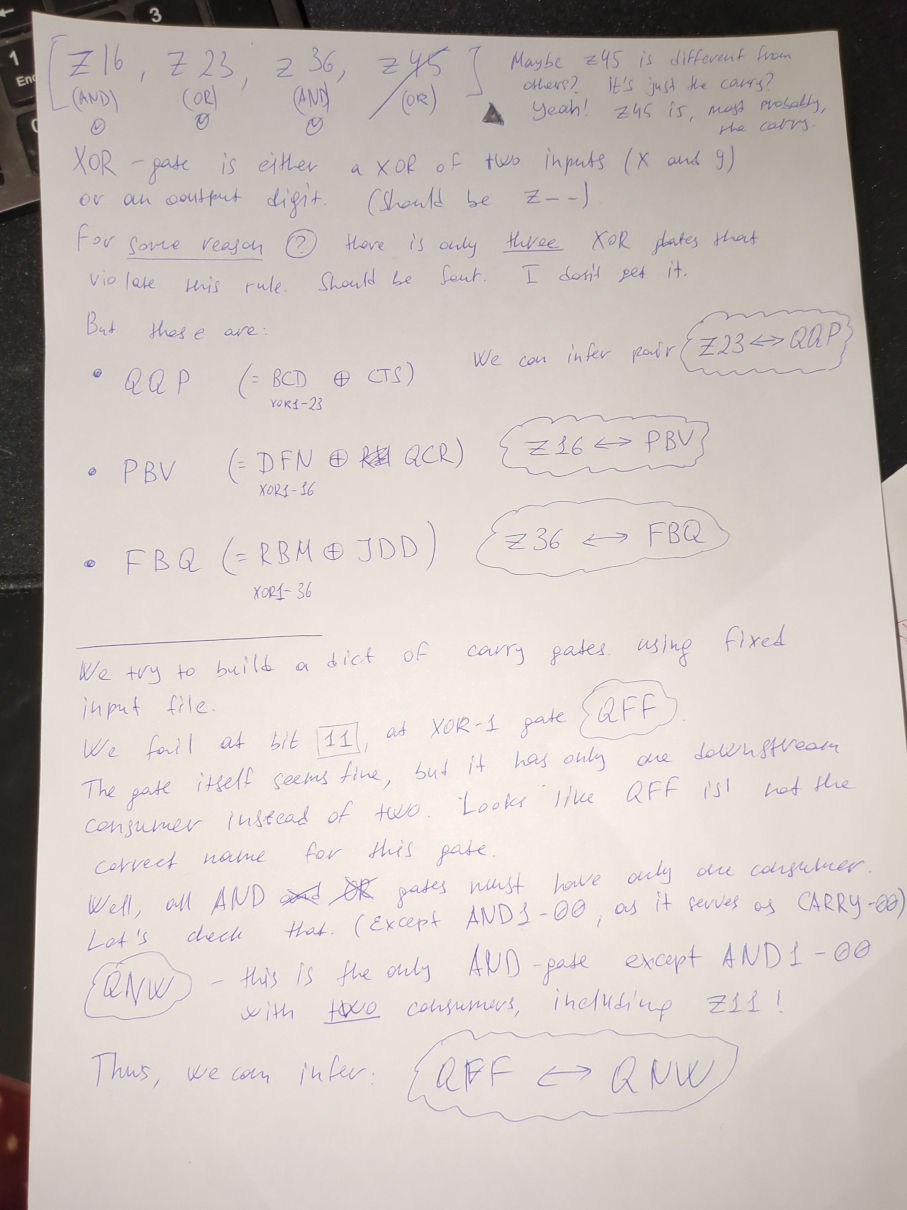 3
1
[ Z16, Z23, Z36, Z45 ]
(AND) (OR) (AND) (OR)
Maybe Z45 is different from
others? It's just the carry?
Yeah! Z45 is, most probably,
the carry.
XOR-gate is either a XOR of two inputs (X and y)
or an ooutput digit. (Should be Z--)
For some reason (?) there is only three XOR gates that
violate this rule. Should be four. I don't get it.
But those are:
• QQP (= BCD ⊕ CTS)
XOR1-23
We can infer pair Z23 ↔ QQP
• PBV (= DFN ⊕ QCR)
XOR1-16
Z16 ↔ PBV
• FBQ (= RBM ⊕ JDD)
XOR1-36
Z36 ↔ FBQ
We try to build a dict of carry gates using fixed
input file.
We fail at bit 11, at XOR-1 gate QFF.
The gate itself seems fine, but it has only one downstream
consumer instead of two. Looks like QFF is not the
correct name for this gate.
Well, all AND and OR gates must have only one consumer.
Let's check that. (Except AND1-00, as it serves as CARRY-00)
QNW - this is the only AND-gate except AND1-00
with two consumers, including Z11!
Thus, we can infer: QFF ↔ QNW